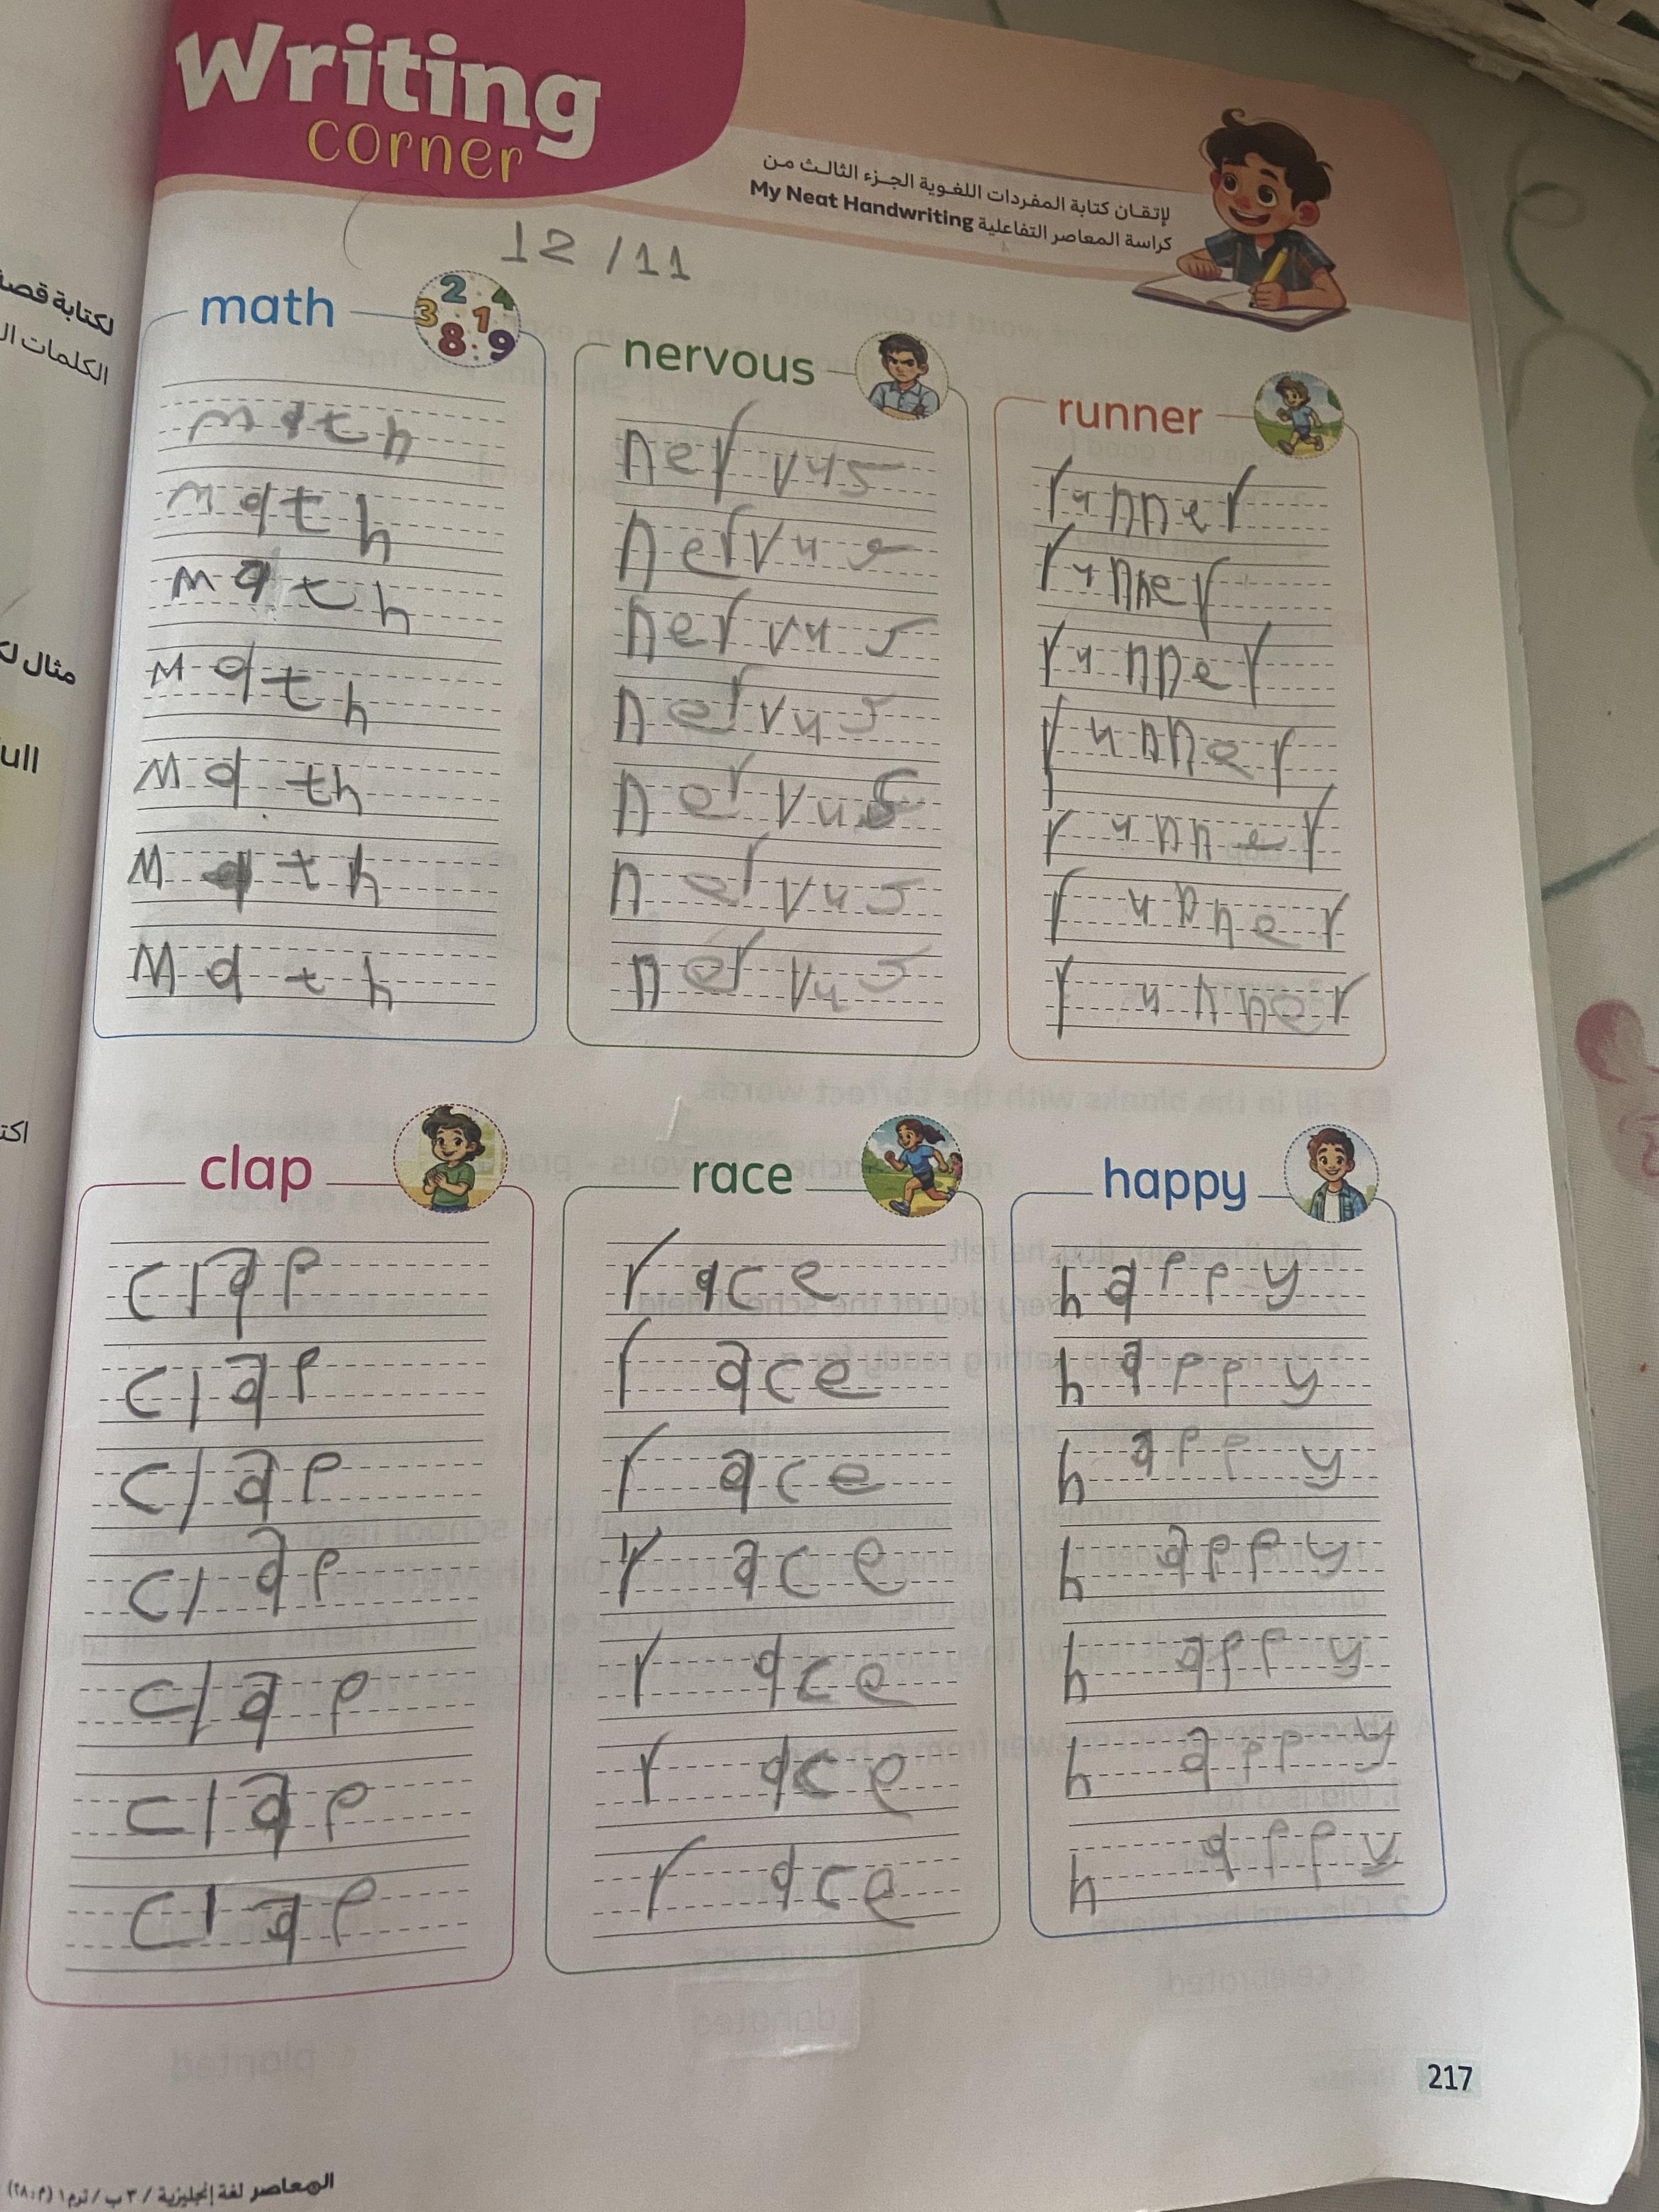 Writing
corner
لإتقان كتابة المفردات اللغوية الجزء الثالث من
كراسة المعاصر التفاعلية My Neat Handwriting
12/11
math
2 4
3 1
8 9
math
math
math
math
math
math
math
nervous
nervus
nervus
nervus
nervus
nervus
nervus
nervus
runner
runner
runner
runner
runner
runner
runner
runner
clap
clap
clap
clap
clap
clap
clap
clap
race
race
race
race
race
race
race
race
happy
happy
happy
happy
happy
happy
happy
happy
217
المعاصر لغة إنجليزية / ٣ ب / ترم ١ (م: ٢٨)
لكتابة قصة
الكلمات
مثال
ull